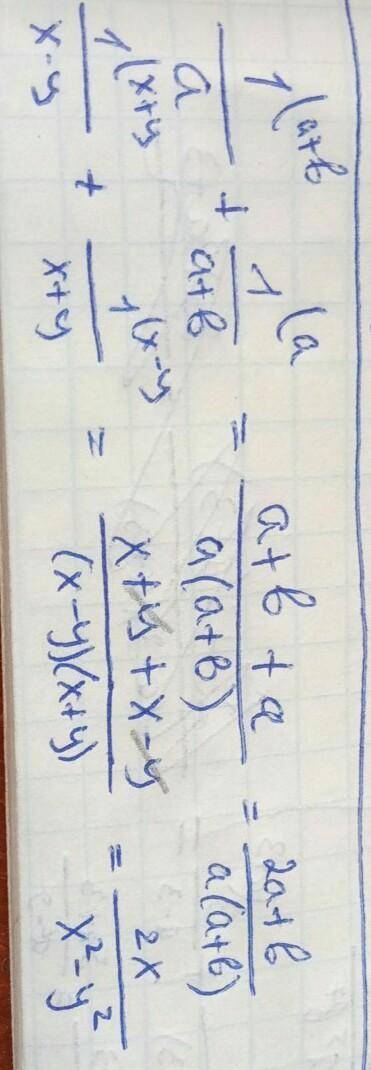 1(a+b / a + 1(a / a+b = a+b+a / a(a+b) = 2a+b / a(a+b)
1(x+y / x-y + 1(x-y / x+y = x+y+x-y / (x-y)(x+y) = 2x / x²-y²